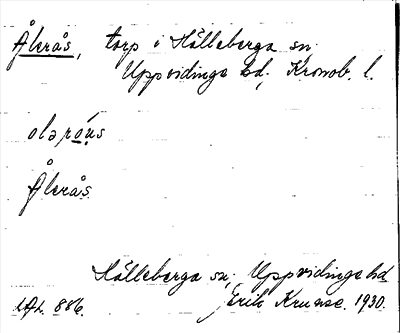 Ålerås, torp i Hälleberga sn,
Uppvidinge hd, Kronob. l.
oləro̱u̱s
Ålerås
Hälleberga sn, Uppvidinge hd
ULA. 886. Erik Kruuse. 1930.